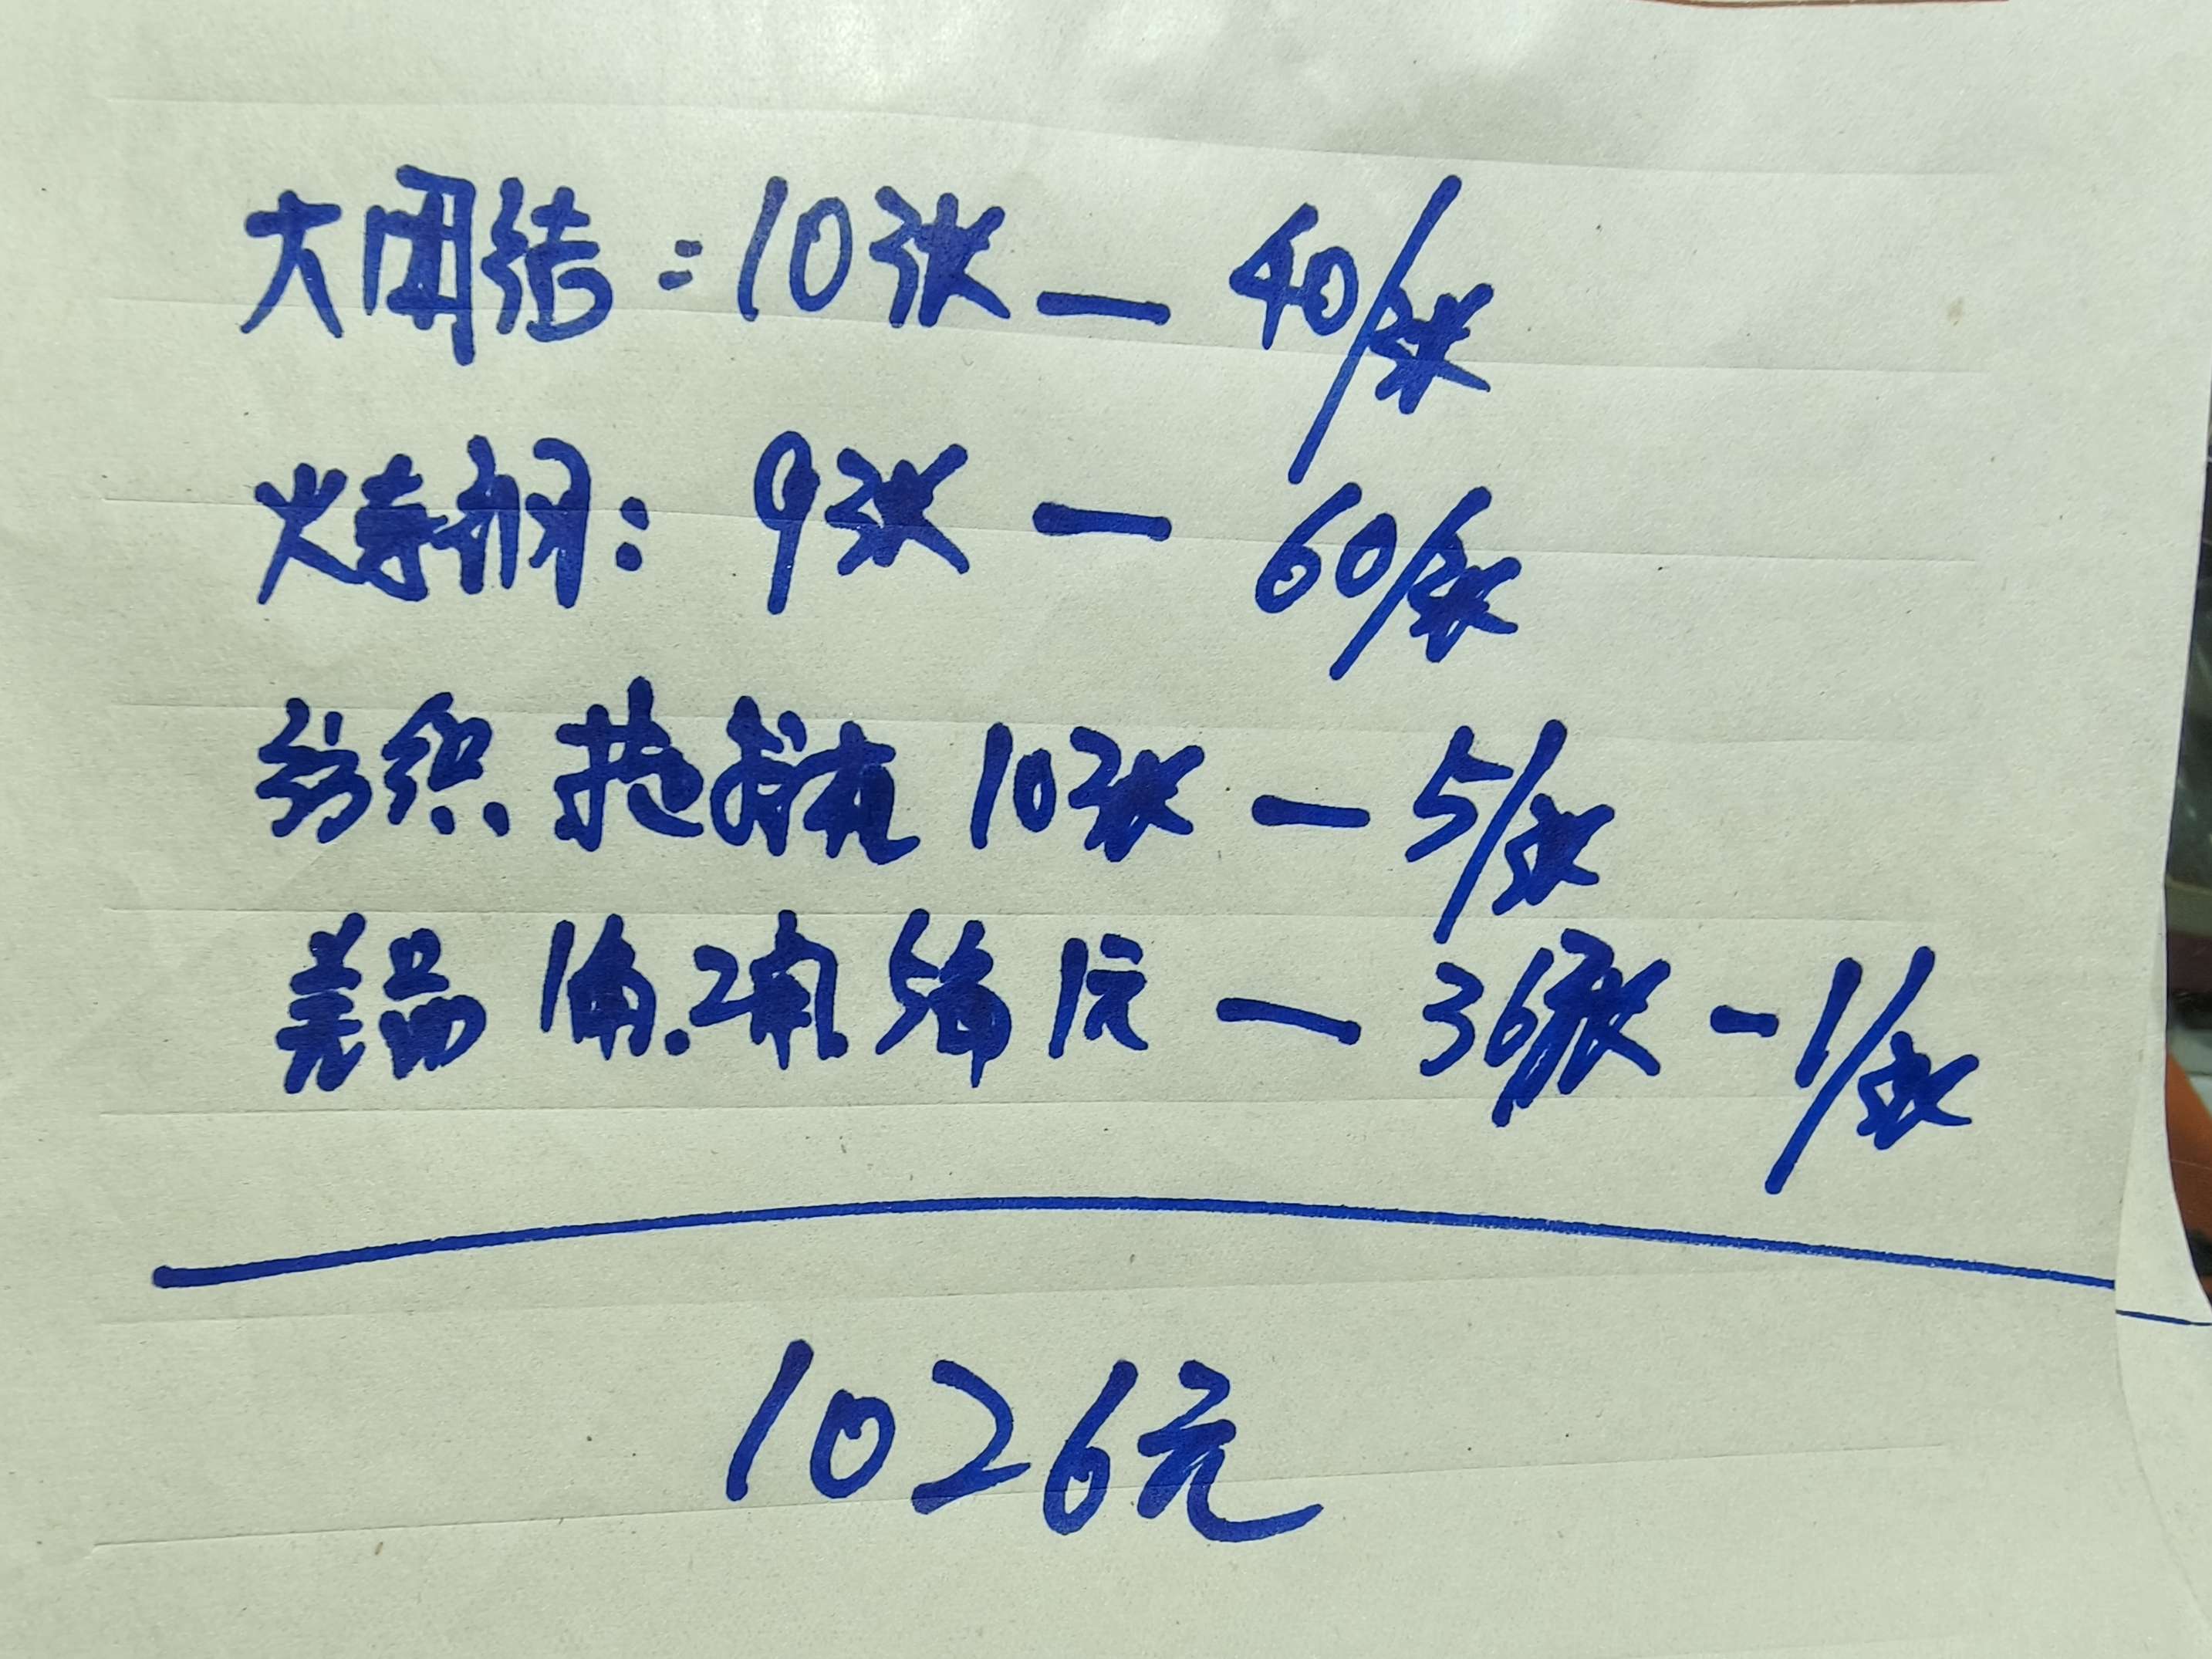 大团结：10张 — 40/张
火车钢：9张 — 60/张
纺织、拖拉机 10张 — 5/张
差品 1角.2角 5角 1元 — 36张 - 1/张
1026元